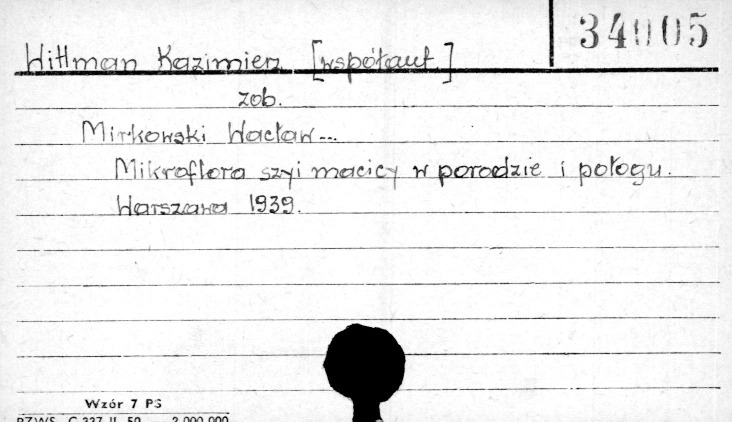 34005
Wittman Kazimierz [współaut.]
zob.
Mirkowski Wacław...
Mikroflora szyi macicy w porodzie i połogu.
Warszawa 1939.
Wzór 7 PS
PZWS. C-337 II. 50 2.000.000